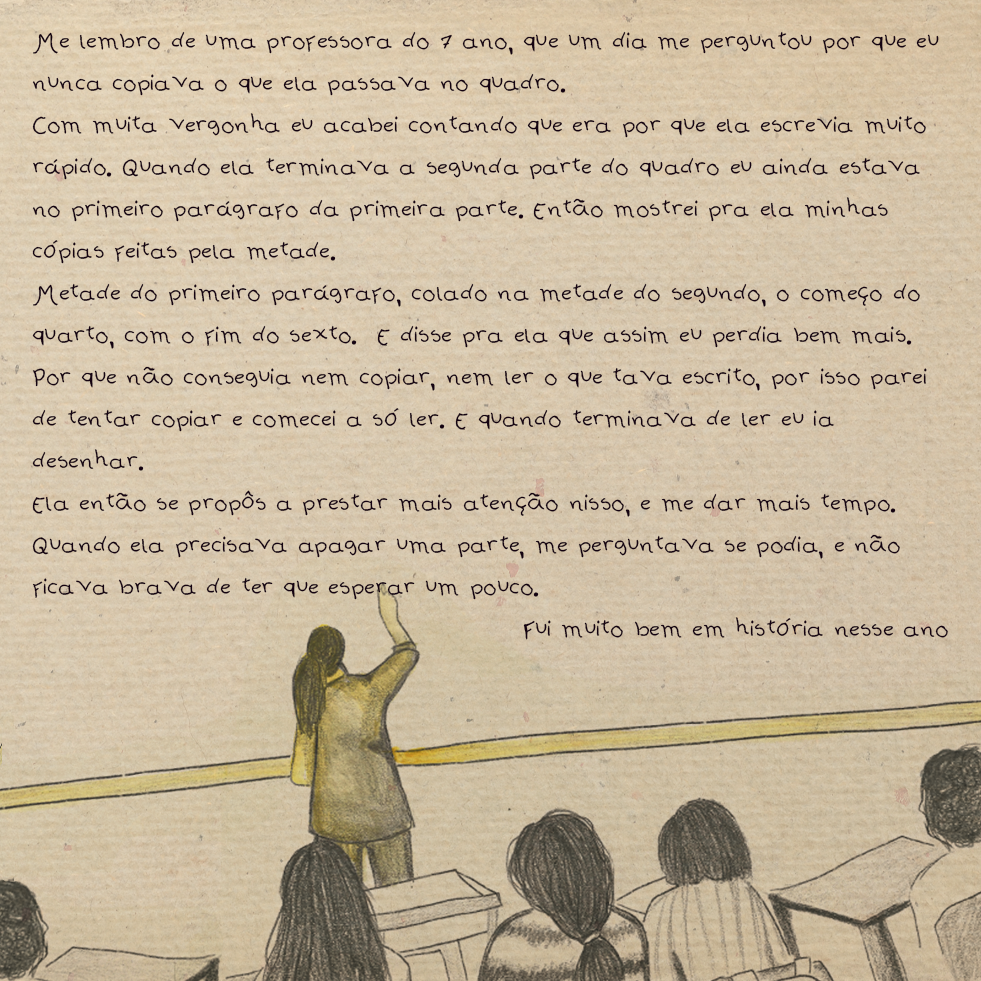 Me lembro de uma professora do 7 ano, que um dia me perguntou por que eu
nunca copiava o que ela passava no quadro.
Com muita vergonha eu acabei contando que era por que ela escrevia muito
rápido. Quando ela terminava a segunda parte do quadro eu ainda estava
no primeiro parágrafo da primeira parte. Então mostrei pra ela minhas
cópias feitas pela metade.
Metade do primeiro parágrafo, colado na metade do segundo, o começo do
quarto, com o fim do sexto. E disse pra ela que assim eu perdia bem mais.
Por que não conseguia nem copiar, nem ler o que tava escrito, por isso parei
de tentar copiar e comecei a só ler. E quando terminava de ler eu ia
desenhar.
Ela então se propôs a prestar mais atenção nisso, e me dar mais tempo.
Quando ela precisava apagar uma parte, me perguntava se podia, e não
ficava brava de ter que esperar um pouco.
Fui muito bem em história nesse ano